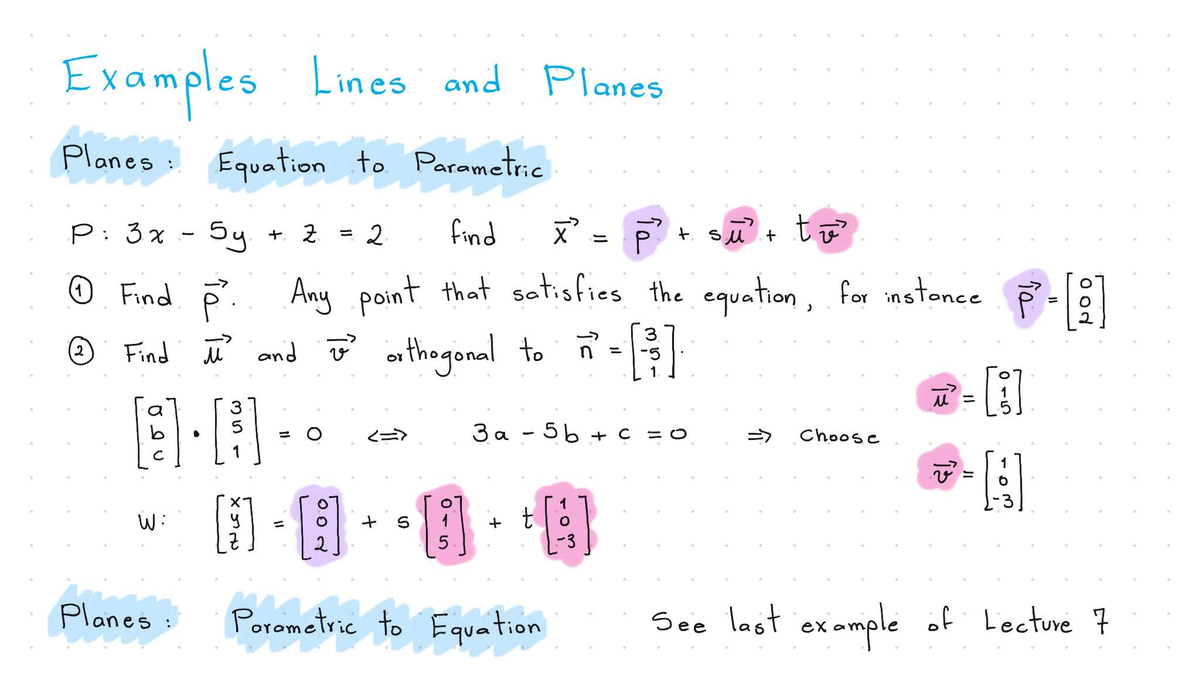 Examples Lines and Planes
Planes: Equation to Parametric
P: 3x - 5y + z = 2 find x⃗ = p⃗ + su⃗ + tv⃗
① Find p⃗. Any point that satisfies the equation, for instance p⃗ = [0 0 2]
② Find u⃗ and v⃗ orthogonal to n⃗ = [3 -5 1].
[a b c] · [3 5 1] = 0 <=> 3a - 5b + c = 0 => Choose u⃗ = [0 1 5]
v⃗ = [1 0 -3]
W: [x y z] = [0 0 2] + s [0 1 5] + t [1 0 -3]
Planes: Parametric to Equation See last example of Lecture 7